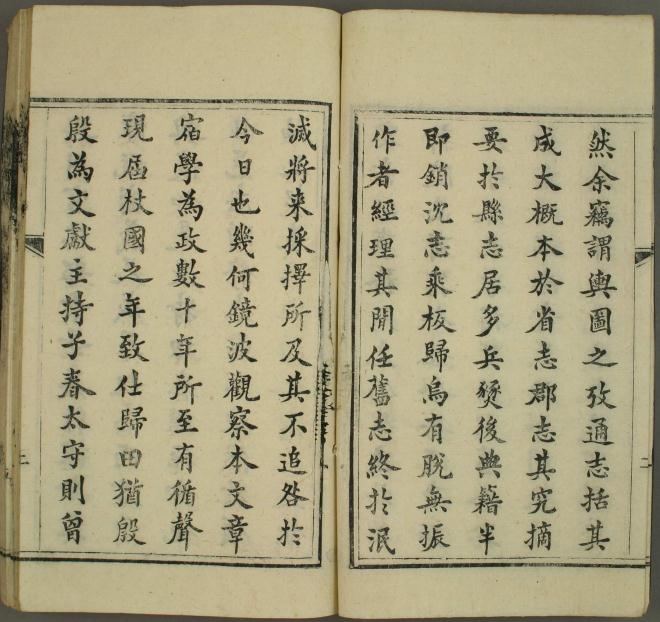 然余竊謂輿圖之攷通志括其
成大概本於省志郡志其究摘
要於縣志居多兵燹後典籍半
即銷沈志乘板歸烏有脫無振
作者經理其間任舊志終於泯
滅將来採擇所及其不追咎於
今日也幾何鏡波觀察本文章
宿學為政數十年所至有循聲
現屆杖國之年致仕歸田猶殷
殷為文獻主持子春太守則曾
二
二